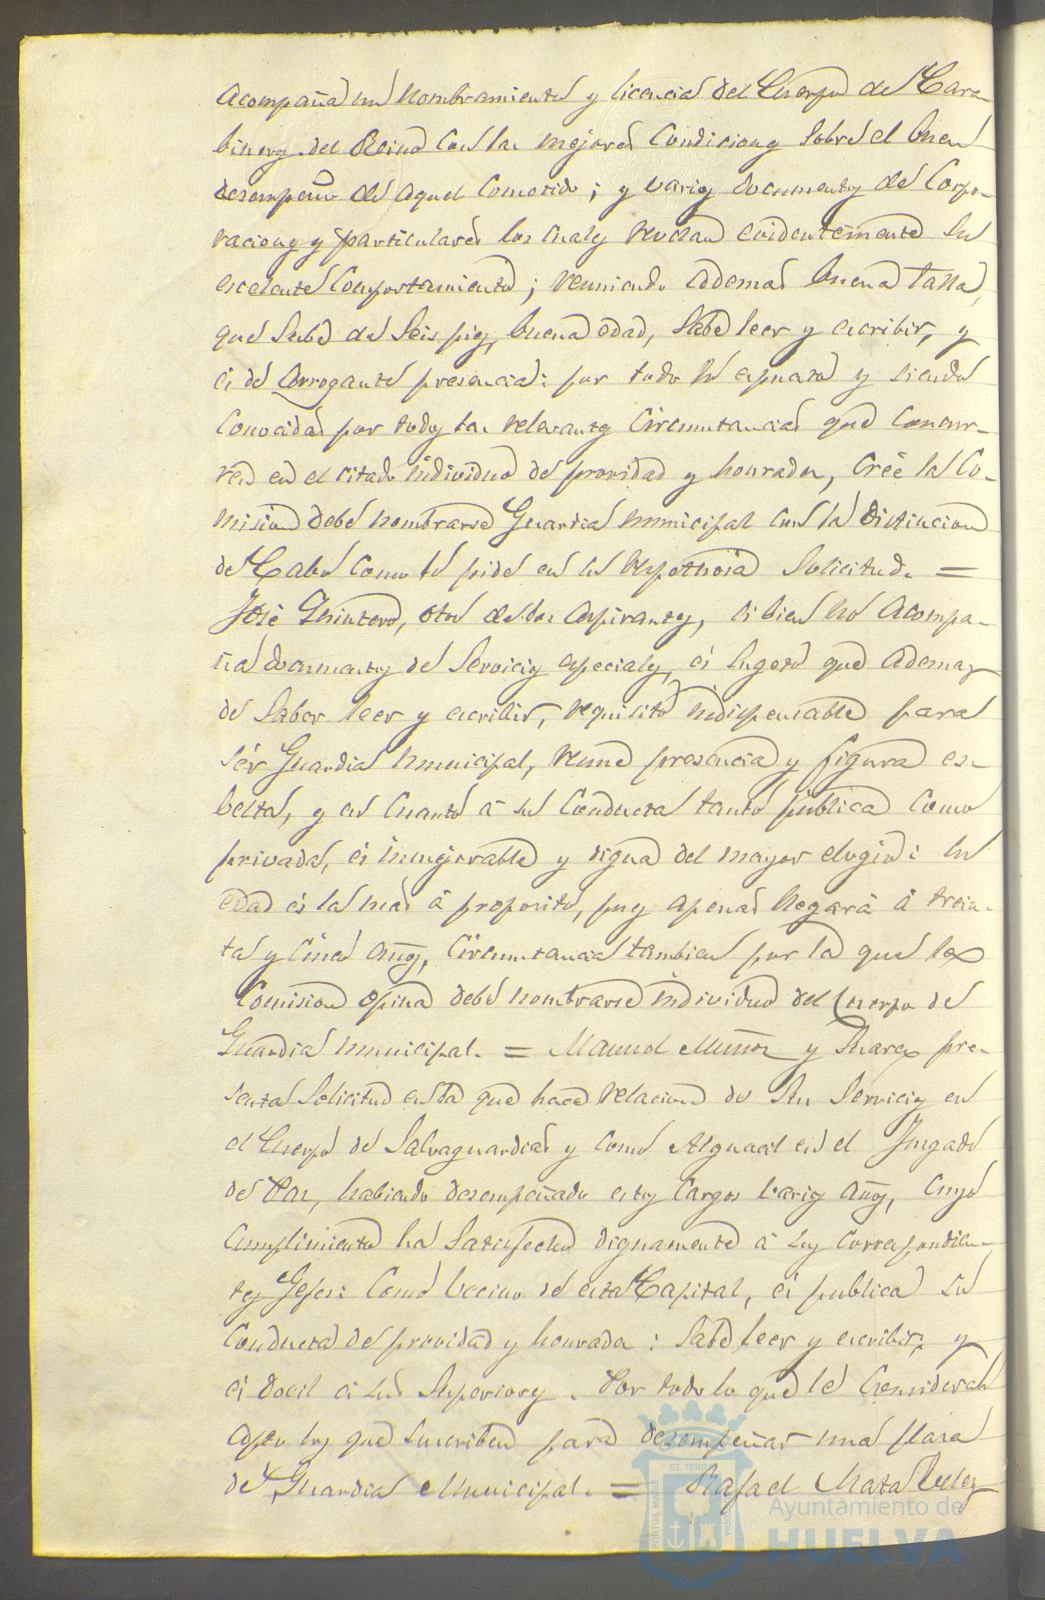 Acompaña un nombramiento y licencia del Cuerpo de Cara-
bineros del Reino con las mejores condiciones sobre el buen
desempeño de aquel cometido; y varios documentos de Corpo-
raciones y particulares los cuales revelan evidentemente su
escelente comportamiento; reuniendo ademas buena talla,
que sube de seis pies, buena edad, sabe leer y escribir, y
és de arrogante presencia: por todo lo espuesto y siendo
conocidas por todos las relevantes circunstancias que concur-
ren en el citado individuo de providad y honradez, creé la Co-
mision debe nombrarse Guardia municipal con la distincion
de Cabo como lo pide en su respetuosa solicitud. =
José Quintero, otro de los aspirantes, si bien no acompa-
ña documentos de servicios especiales, és sugeto que ademas
de saber leer y escribir, requisito indispensable para
sér Guardia municipal, reune presencia y figura es-
belta, y en cuanto á su conducta tanto pública como
privada, és inmejorable y digna del mayor elogio: su
edad és la mas á proposito, pues apenas llegará á trein-
ta y cinco años, circunstancia tambien por la que la
Comision opina debe nombrarse individuo del Cuerpo de
Guardia municipal. = Manuel Muñoz y Suarez pre-
senta solicitud en la que hace relacion de sus servicios en
el Cuerpo de Salvaguardias y como Alguacil en el Juzgado
de Paz, habiendo desempeñado estos cargos varios años, cuyo
cumplimiento ha satisfecho dignamente á sus correspondien-
tes Gefes: como vecino de esta Capital, és publica su
conducta de providad y honrada: sabe leer y escribir; y
és docil á sus Superiores. Por todo lo que le consideran
apto los que suscriben para desempeñar una plaza
de Guardia Municipal. = Rafael Mata Velez
ET TERRAE
PORTUS MARIS
CUSTODIA
Ayuntamiento de
HUELVA